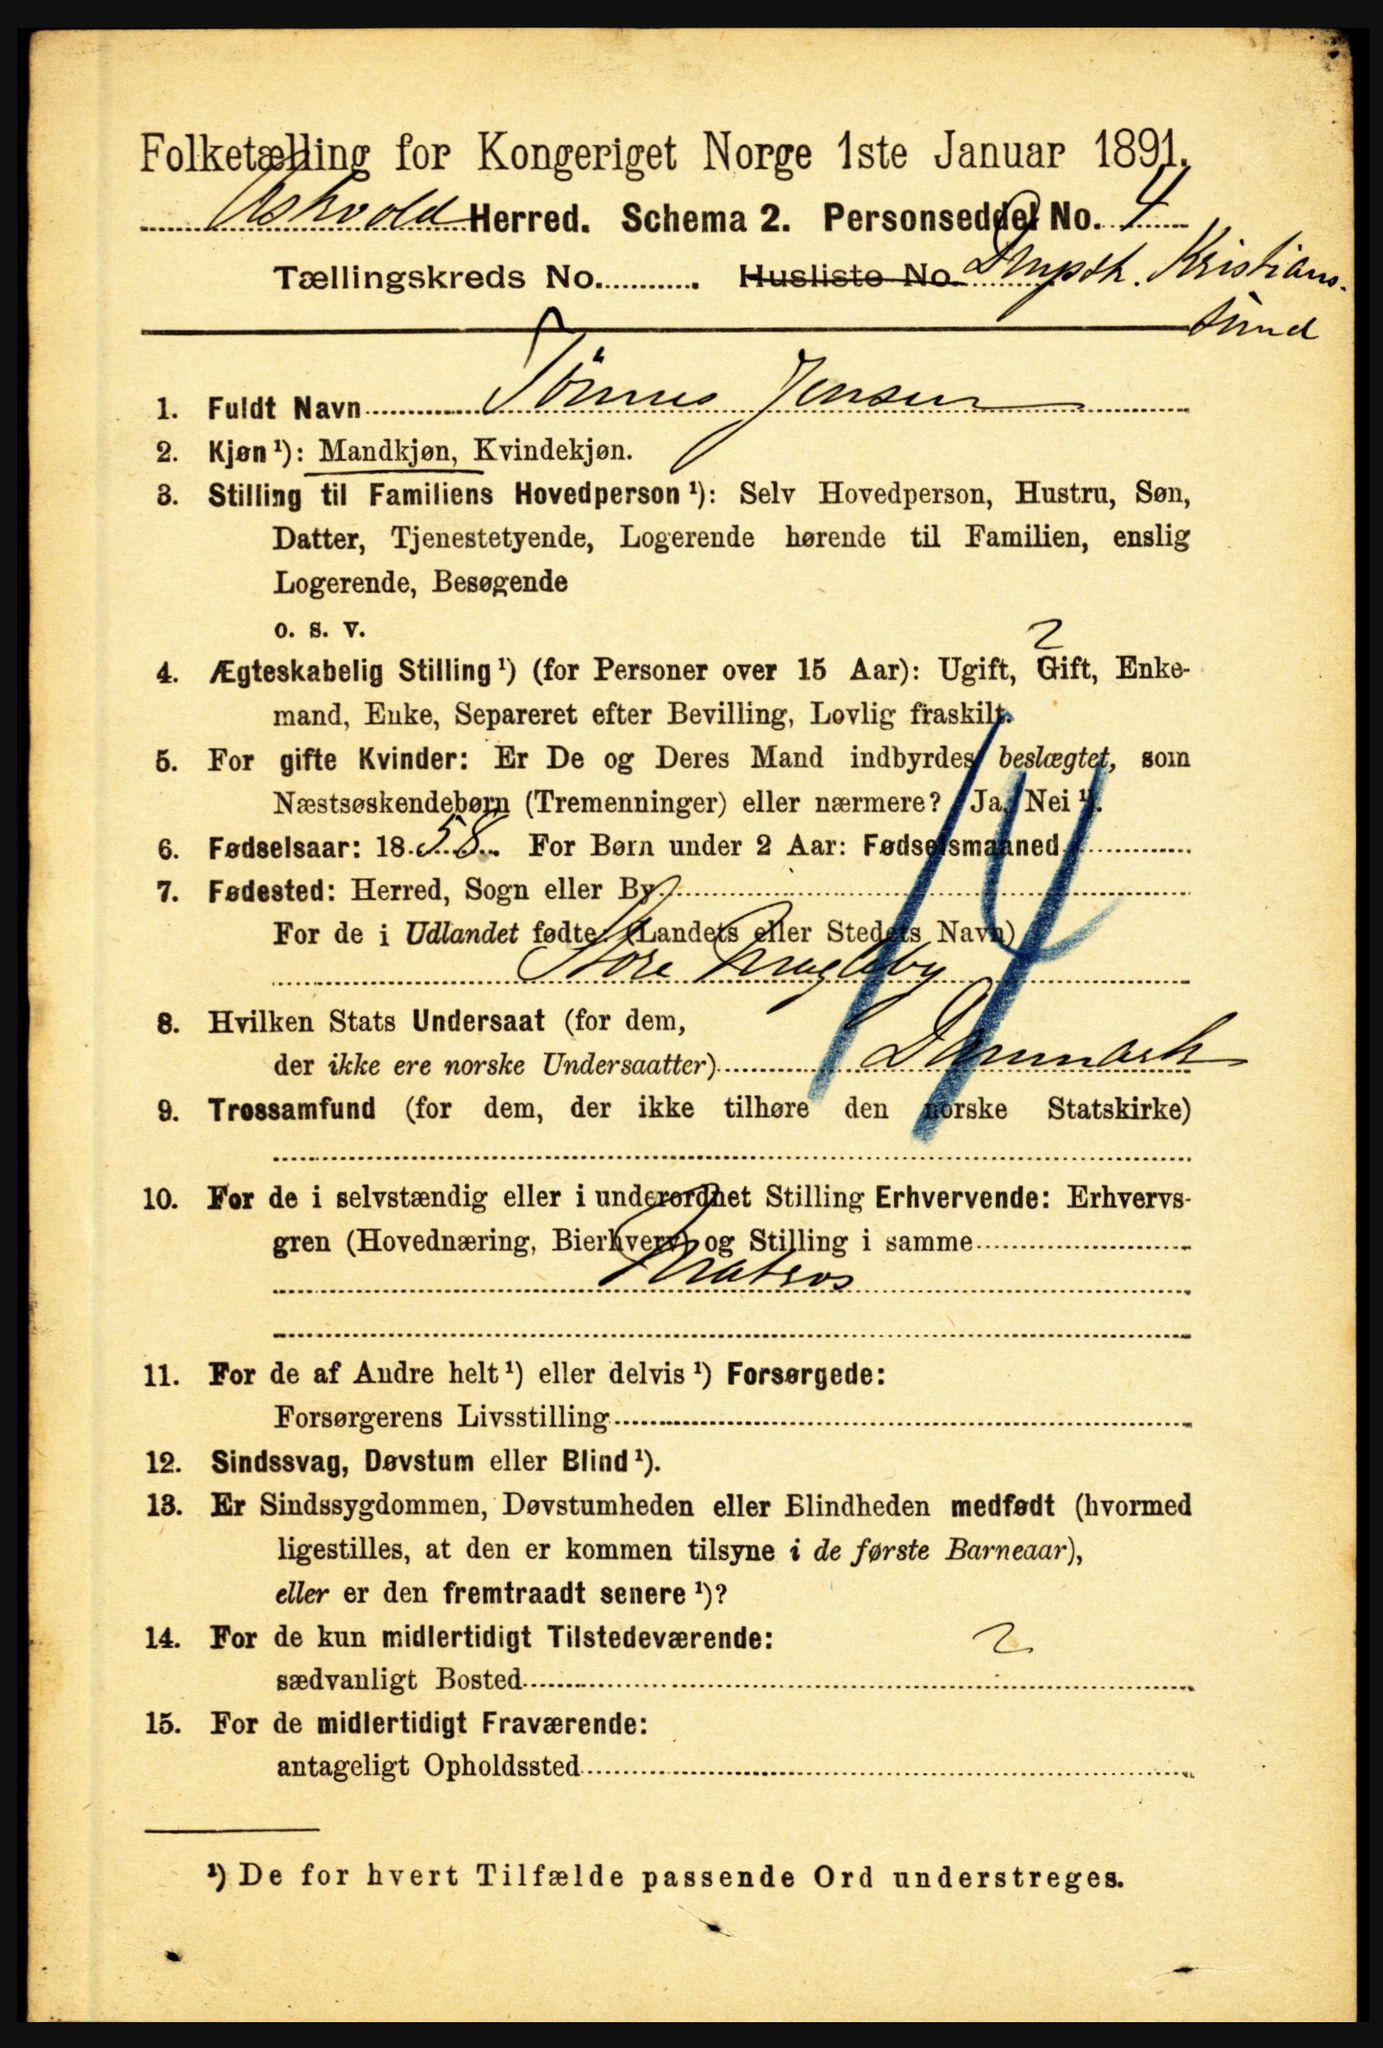 Folketælling for Kongeriget Norge 1ste Januar 1891.
Askvold Herred. Schema 2. Personseddel No. 4
Tællingskreds No. Husliste No. Dmpsk. Kristians-
sund
1. Fuldt Navn Tönnes Jensen
2. Kjøn ¹): Mandkjøn, Kvindekjøn.
3. Stilling til Familiens Hovedperson ¹): Selv Hovedperson, Hustru, Søn,
Datter, Tjenestetyende, Logerende hørende til Familien, enslig
Logerende, Besøgende
o. s. v.
2
4. Ægteskabelig Stilling ¹) (for Personer over 15 Aar): Ugift, Gift, Enke-
mand, Enke, Separeret efter Bevilling, Lovlig fraskilt.
5. For gifte Kvinder: Er De og Deres Mand indbyrdes beslægtet, som
Næstsøskendebørn (Tremenninger) eller nærmere? Ja, Nei ¹).
14
6. Fødselsaar: 1858. For Børn under 2 Aar: Fødselsmaaned
7. Fødested: Herred, Sogn eller By
For de i Udlandet fødte: (Landets eller Stedets Navn)
Store Magleby
8. Hvilken Stats Undersaat (for dem,
der ikke ere norske Undersaatter) Danmark
9. Trossamfund (for dem, der ikke tilhøre den norske Statskirke)
10. For de i selvstændig eller i underordnet Stilling Erhvervende: Erhvervs-
gren (Hovednæring, Bierhverv) og Stilling i samme
Matros
11. For de af Andre helt ¹) eller delvis ¹) Forsørgede:
Forsørgerens Livsstilling
12. Sindssvag, Døvstum eller Blind ¹).
13. Er Sindssygdommen, Døvstumheden eller Blindheden medfødt (hvormed
ligestilles, at den er kommen tilsyne i de første Barneaar),
eller er den fremtraadt senere ¹)?
14. For de kun midlertidigt Tilstedeværende:
sædvanligt Bosted 2
15. For de midlertidigt Fraværende:
antageligt Opholdssted
¹) De for hvert Tilfælde passende Ord understreges.